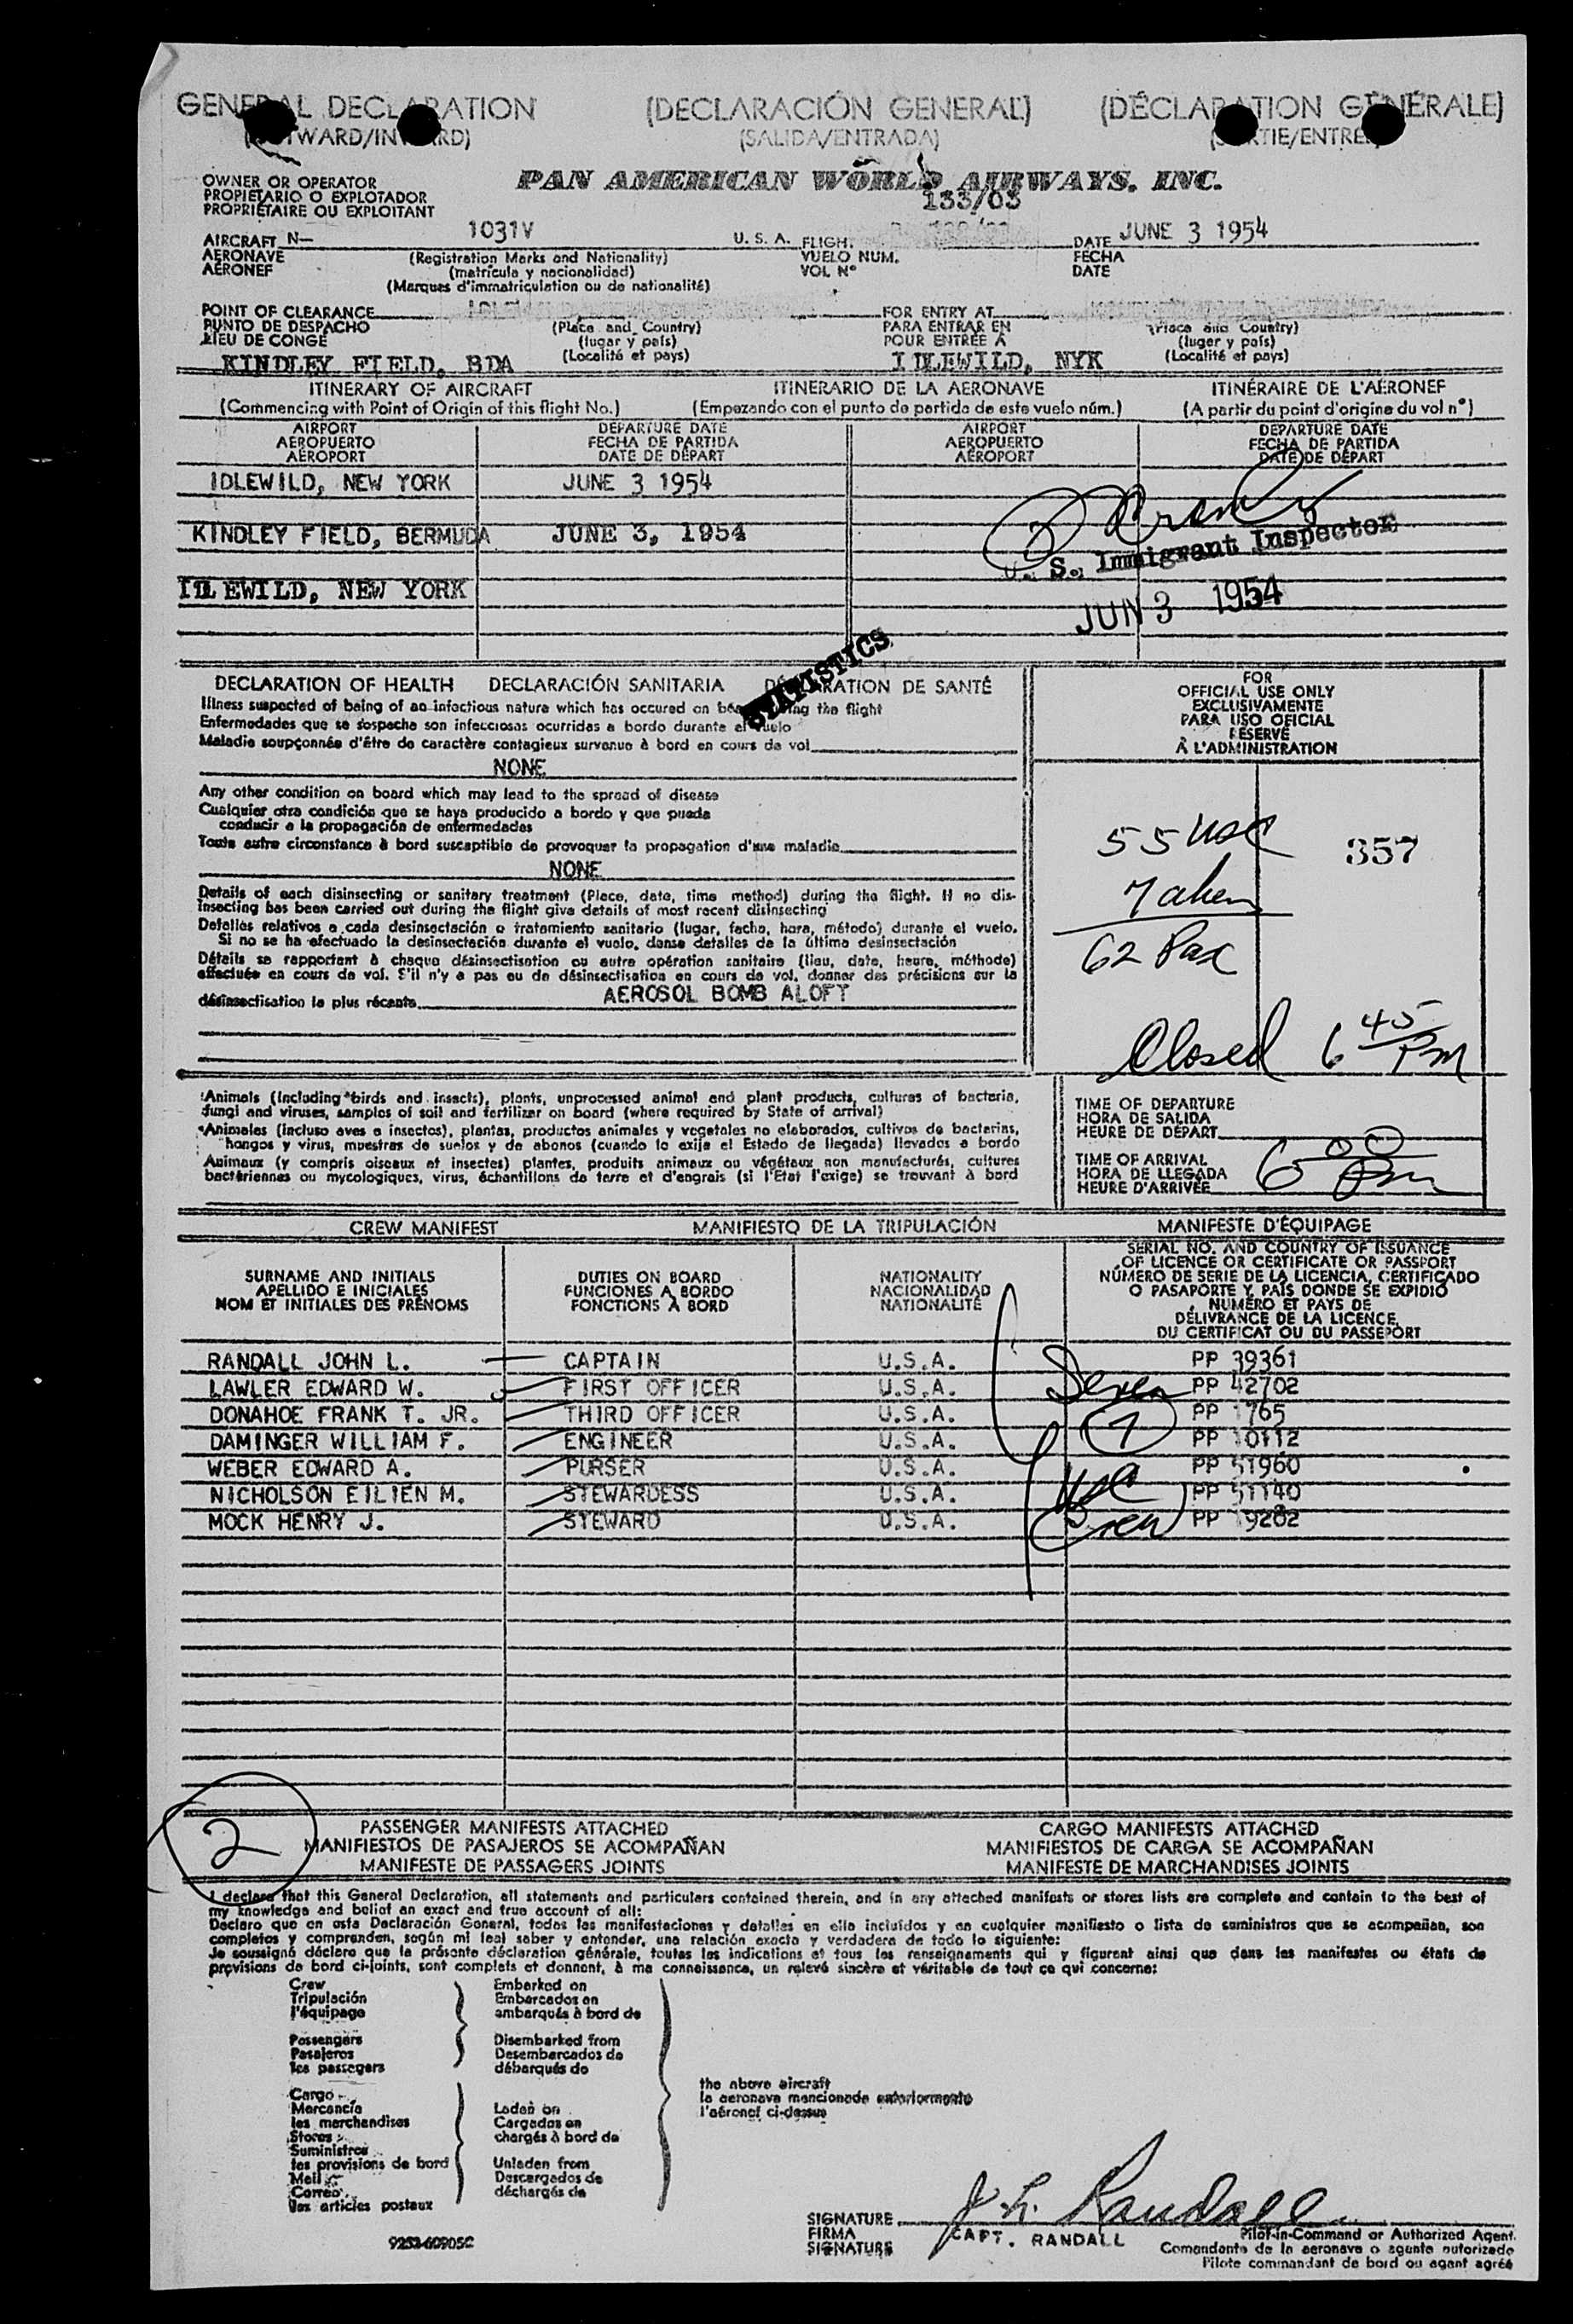 GENERAL DECLARATION (DECLARACIÓN GENERAL) (DÉCLARATION GÉNÉRALE)
(OUTWARD/INWARD) (SALIDA/ENTRADA) (SORTIE/ENTRÉE)
OWNER OR OPERATOR
PROPIETARIO O EXPLOTADOR
PROPRIÉTAIRE OU EXPLOITANT
PAN AMERICAN WORLD AIRWAYS, INC.
133/03
AIRCRAFT N— 1031V U. S. A. FLIGHT DATE JUNE 3 1954
AERONAVE (Registration Marks and Nationality) VUELO NUM. FECHA
AÉRONEF (matrícula y nacionalidad) VOL Nº DATE
(Marques d'immatriculation ou de nationalité)
POINT OF CLEARANCE FOR ENTRY AT
PUNTO DE DESPACHO (Place and Country) PARA ENTRAR EN (Place and Country)
LIEU DE CONGÉ (lugar y país) POUR ENTRÉE À (luger y país)
(Localité et pays) (Localité et pays)
KINDLEY FIELD, BDA IDLEWILD, NYK
ITINERARY OF AIRCRAFT ITINERARIO DE LA AERONAVE ITINÉRAIRE DE L'AÉRONEF
(Commencing with Point of Origin of this flight No.) (Empezando con el punto de partida de este vuelo núm.) (A partir du point d'origine du vol nº)
AIRPORT DEPARTURE DATE AIRPORT DEPARTURE DATE
AEROPUERTO FECHA DE PARTIDA AEROPUERTO FECHA DE PARTIDA
AÉROPORT DATE DE DÉPART AÉROPORT DATE DE DÉPART
IDLEWILD, NEW YORK JUNE 3 1954
KINDLEY FIELD, BERMUDA JUNE 3, 1954
U. S. Immigrant Inspector
IDLEWILD, NEW YORK
JUN 3 1954
STATISTICS
DECLARATION OF HEALTH DECLARACIÓN SANITARIA DÉCLARATION DE SANTÉ
Illness suspected of being of an infectious nature which has occured on board during the flight
Enfermedades que se sospecha son infecciosas ocurridas a bordo durante el vuelo
Maladie soupçonnée d'être de caractère contagieux survenue à bord en cours de vol
NONE
Any other condition on board which may lead to the spread of disease
Cualquier otra condición que se haya producido a bordo y que pueda
conducir a la propagación de enfermedades
Toute autre circonstance à bord susceptible de provoquer la propagation d'une maladie
NONE
Details of each disinsecting or sanitary treatment (Place, date, time method) during the flight. If no dis-
insecting has been carried out during the flight give details of most recent disinsecting
Detalles relativos a cada desinsectación o tratamiento sanitario (lugar, fecha, hora, método) durante el vuelo.
Si no se ha efectuado la desinsectación durante el vuelo, danse detalles de la última desinsectación
Détails se rapportant à chaque désinsectisation ou autre opération sanitaire (lieu, date, heure, méthode)
effectuée en cours de vol. S'il n'y a pas eu de désinsectisation en cours de vol, donner des précisions sur la
désinsectisation la plus récente AEROSOL BOMB ALOFT
FOR
OFFICIAL USE ONLY
EXCLUSIVAMENTE
PARA USO OFICIAL
RÉSERVÉ
À L'ADMINISTRATION
55 USC 357
7 alien
62 Pax
Closed 6 45 PM
Animals (Including birds and insects), plants, unprocessed animal and plant products, cultures of bacteria,
fungi and viruses, samples of soil and fertilizer on board (where required by State of arrival)
Animales (incluso aves e insectos), plantas, productos animales y vegetales no elaborados, cultivos de bacterias,
hongos y virus, muestras de suelos y de abonos (cuando lo exija el Estado de llegada) llevados a bordo
Animaux (y compris oiseaux et insectes) plantes, produits animaux ou végétaux non manufacturés, cultures
bactériennes ou mycologiques, virus, échantillons de terre et d'engrais (si l'Etat l'exige) se trouvant à bord
TIME OF DEPARTURE
HORA DE SALIDA
HEURE DE DÉPART
TIME OF ARRIVAL
HORA DE LLEGADA
HEURE D'ARRIVÉE 6 00 Pm
CREW MANIFEST MANIFIESTO DE LA TRIPULACIÓN MANIFESTE D'ÉQUIPAGE
SURNAME AND INITIALS
APELLIDO E INICIALES
NOM ET INITIALES DES PRÉNOMS
DUTIES ON BOARD
FUNCIONES A BORDO
FONCTIONS À BORD
NATIONALITY
NACIONALIDAD
NATIONALITÉ
SERIAL NO. AND COUNTRY OF ISSUANCE
OF LICENCE OR CERTIFICATE OR PASSPORT
NÚMERO DE SERIE DE LA LICENCIA, CERTIFICADO
O PASAPORTE Y PAÍS DONDE SE EXPIDIÓ
NUMÉRO ET PAYS DE
DÉLIVRANCE DE LA LICENCE,
DU CERTIFICAT OU DU PASSEPORT
RANDALL JOHN L. CAPTAIN U.S.A. PP 39361
LAWLER EDWARD W. FIRST OFFICER U.S.A. PP 42702
DONAHOE FRANK T. JR. THIRD OFFICER U.S.A. PP 1765
DAMINGER WILLIAM F. ENGINEER U.S.A. PP 10112
WEBER EDWARD A. PURSER U.S.A. PP 51960
NICHOLSON EILIEN M. STEWARDESS U.S.A. PP 51140
MOCK HENRY J. STEWARD U.S.A. PP 19282
Seven
(7)
USC
Crew
2
PASSENGER MANIFESTS ATTACHED CARGO MANIFESTS ATTACHED
MANIFIESTOS DE PASAJEROS SE ACOMPAÑAN MANIFIESTOS DE CARGA SE ACOMPAÑAN
MANIFESTE DE PASSAGERS JOINTS MANIFESTE DE MARCHANDISES JOINTS
I declare that this General Declaration, all statements and particulars contained therein, and in any attached manifests or stores lists are complete and contain to the best of
my knowledge and belief an exact and true account of all:
Declaro que en esta Declaración General, todas las manifestaciones y detalles en ella incluídos y en cualquier manifiesto o lista de suministros que se acompañan, son
completos y comprenden, según mi leal saber y entender, una relación exacta y verdadera de todo lo siguiente:
Je soussigné déclare que la présente déclaration générale, toutes les indications et tous les renseignements qui y figurent ainsi que dans les manifestes ou états de
provisions de bord ci-joints, sont complets et donnent, à ma connaissance, un relevé sincère et véritable de tout ce qui concerne:
Crew Embarked on
Tripulación Embarcados en
l'équipage embarqués à bord de
Passengers Disembarked from
Pasajeros Desembarcados de
les passegers débarqués de
the above aircraft
la aeronave mencionada anteriormente
l'aéronef ci-dessus
Cargo
Mercancía Laden on
les merchandises Cargados en
Stores chargés à bord de
Suministros
les provisions de bord Unladen from
Mail Descargados de
Correo déchargés de
les articles postaux
J. L. Randall
SIGNATURE
FIRMA
SIGNATURE
CAPT. RANDALL
Pilot-in-Command or Authorized Agent.
Comandante de la aeronave o agente autorizado
Pilote commandant de bord ou agent agréé